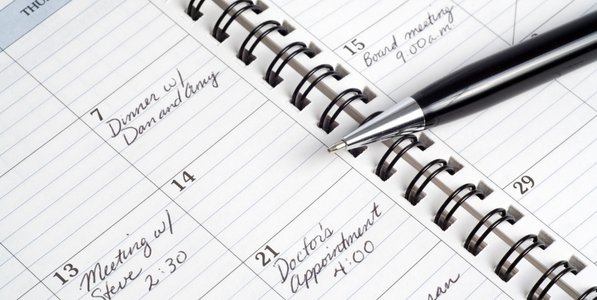 THU
7
Dinner w/
Dan and Amy
15
Board meeting
9:00 a.m
14
29
13
Meeting w/
Steve 2:30
21
Doctor's
Appointment
4:00